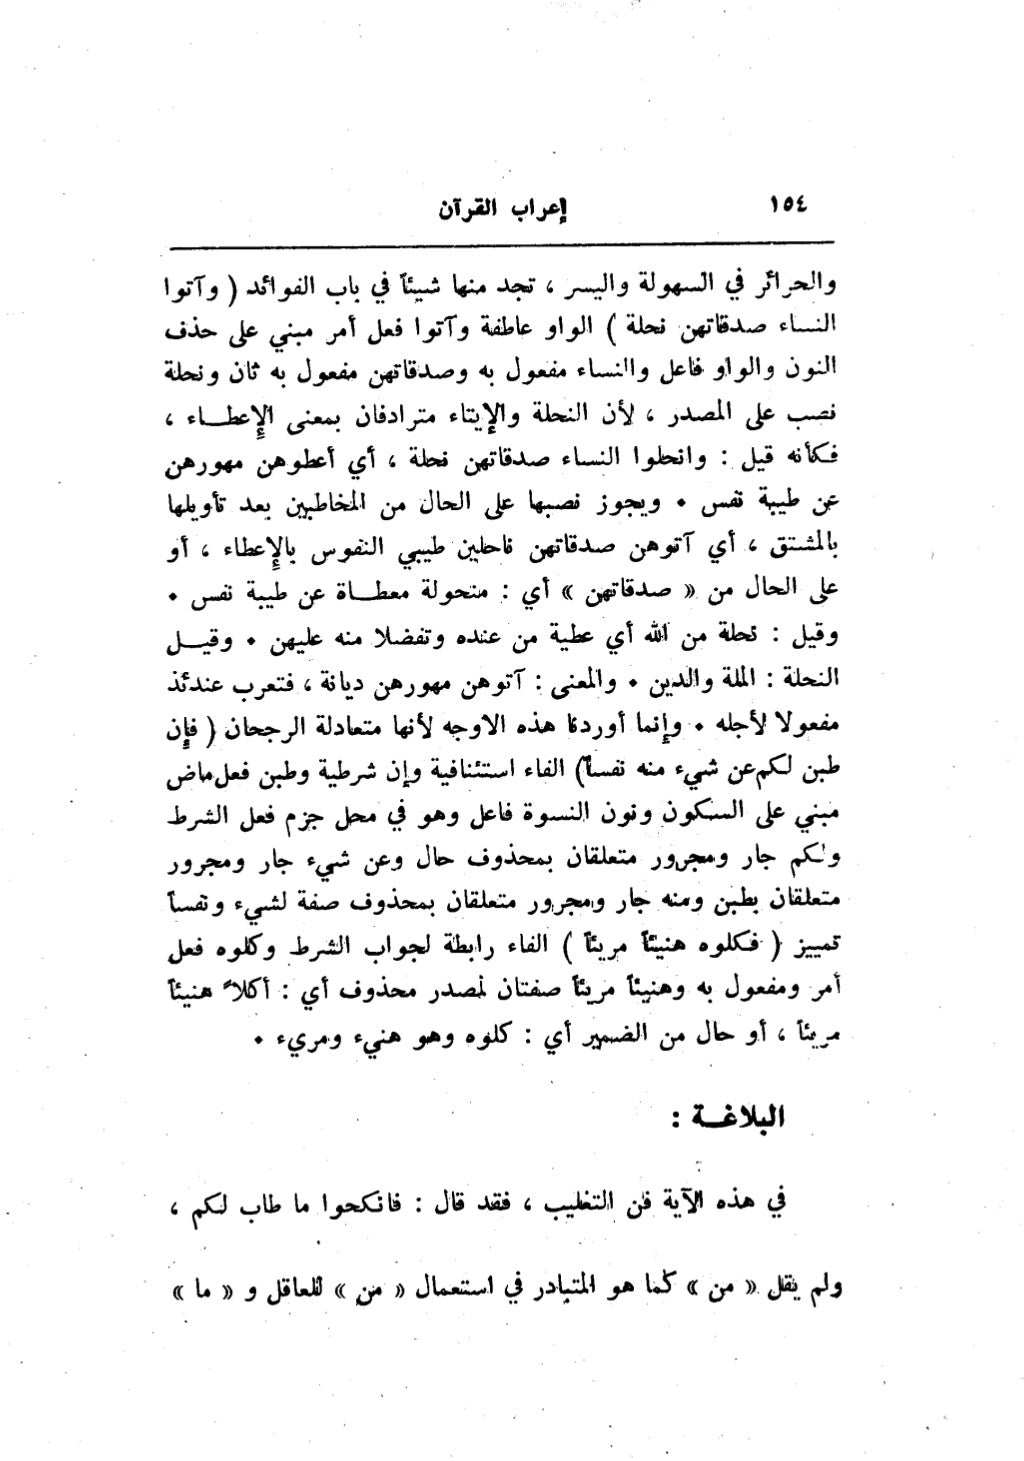 ١٥٤ إعراب القرآن
والحرائر في السهولة واليسر ، تجد منها شيئاً في باب الفوائد ( وآتوا
النساء صدقاتهن نحلة ) الواو عاطفة وآتوا فعل أمر مبني على حذف
النون والواو فاعل والنساء مفعول به وصدقاتهن مفعول به ثان ونحلة
نصب على المصدر ، لأن النحلة والإيتاء مترادفان بمعنى الإعطــاء ،
فكأنه قيل : وانحلوا النساء صدقاتهن نحلة ، أي أعطوهن مهورهن
عن طيبة نفس • ويجوز نصبها على الحال من المخاطبين بعد تأويلها
بالمشتق ، أي آتوهن صدقاتهن ناحلين طيبي النفوس بالإعطاء ، أو
على الحال من « صدقاتهن » أي : منحولة معطــاة عن طيبة نفس •
وقيل : نحلة من الله أي عطية من عنده وتفضلا منه عليهن • وقيــل
النحلة : الملة والدين • والمعنى : آتوهن مهورهن ديانة ، فتعرب عندئذ
مفعولا لأجله • وإنما أوردنا هذه الاوجه لأنها متعادلة الرجحان ( فإن
طبن لكم عن شيء منه نفساً) الفاء استئنافية وإن شرطية وطبن فعل ماض
مبني على السكون ونون النسوة فاعل وهو في محل جزم فعل الشرط
ولكم جار ومجرور متعلقان بمحذوف حال وعن شيء جار ومجرور
متعلقان بطبن ومنه جار ومجرور متعلقان بمحذوف صفة لشيء ونفساً
تمييز ( فكلوه هنيئاً مريئاً ) الفاء رابطة لجواب الشرط وكلوه فعل
أمر ومفعول به وهنيئاً مريئاً صفتان لمصدر محذوف أي : أكلاً هنيئاً
مريئاً ، أو حال من الضمير أي : كلوه وهو هنيء ومريء •
البلاغــة :
في هذه الآية فن التغليب ، فقد قال : فانكحوا ما طاب لكم ،
ولم يقل « من » كما هو المتبادر في استعمال « من » للعاقل و « ما »